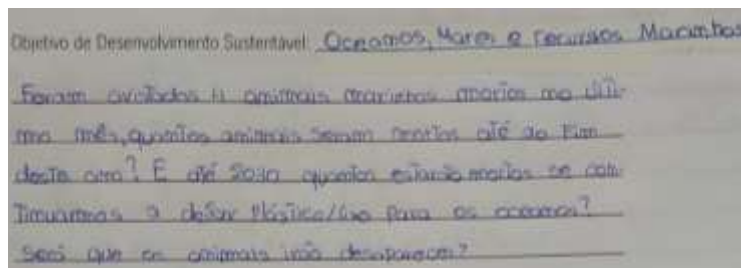 Objetivo de Desenvolvimento Sustentável: Oceanos, Mares e recursos Marinhos
Foram avistados 11 animais marinhos mortos no últi-
mo mês, quantos animais seram mortos até ao fim
deste ano? E até 2030 quantos estarão mortos se con-
tinuarmos a deitar Plástico/lixo para os oceanos?
Será que os animais irão desaparecer?